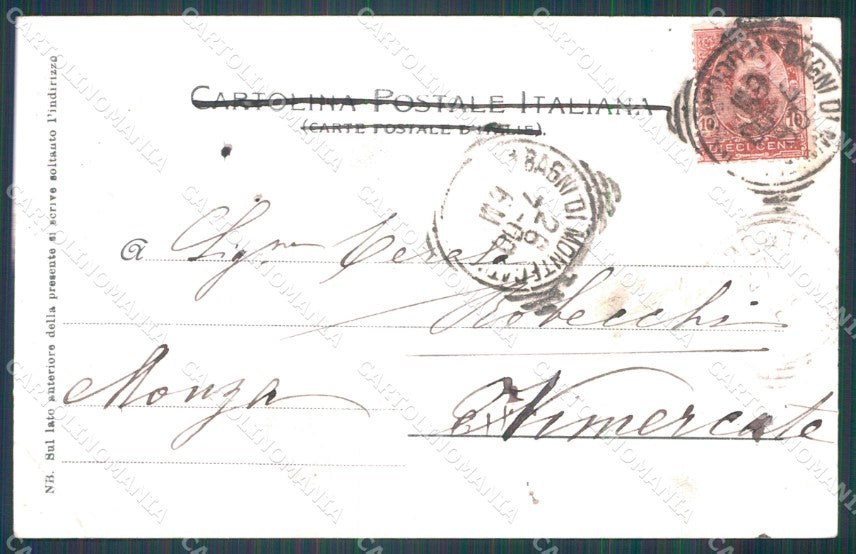 CARTOLINA POSTALE ITALIANA
(CARTE POSTALE D'ITALIE).
NB. Sul lato anteriore della presente si scrive soltanto l'indirizzo
10 10
DIECI CENT
BAGNI DI
BAGNI DI MONTECATI
a Sign Teresa
Robecchi
Monza
Vimercate
CARTOLINOMANIA